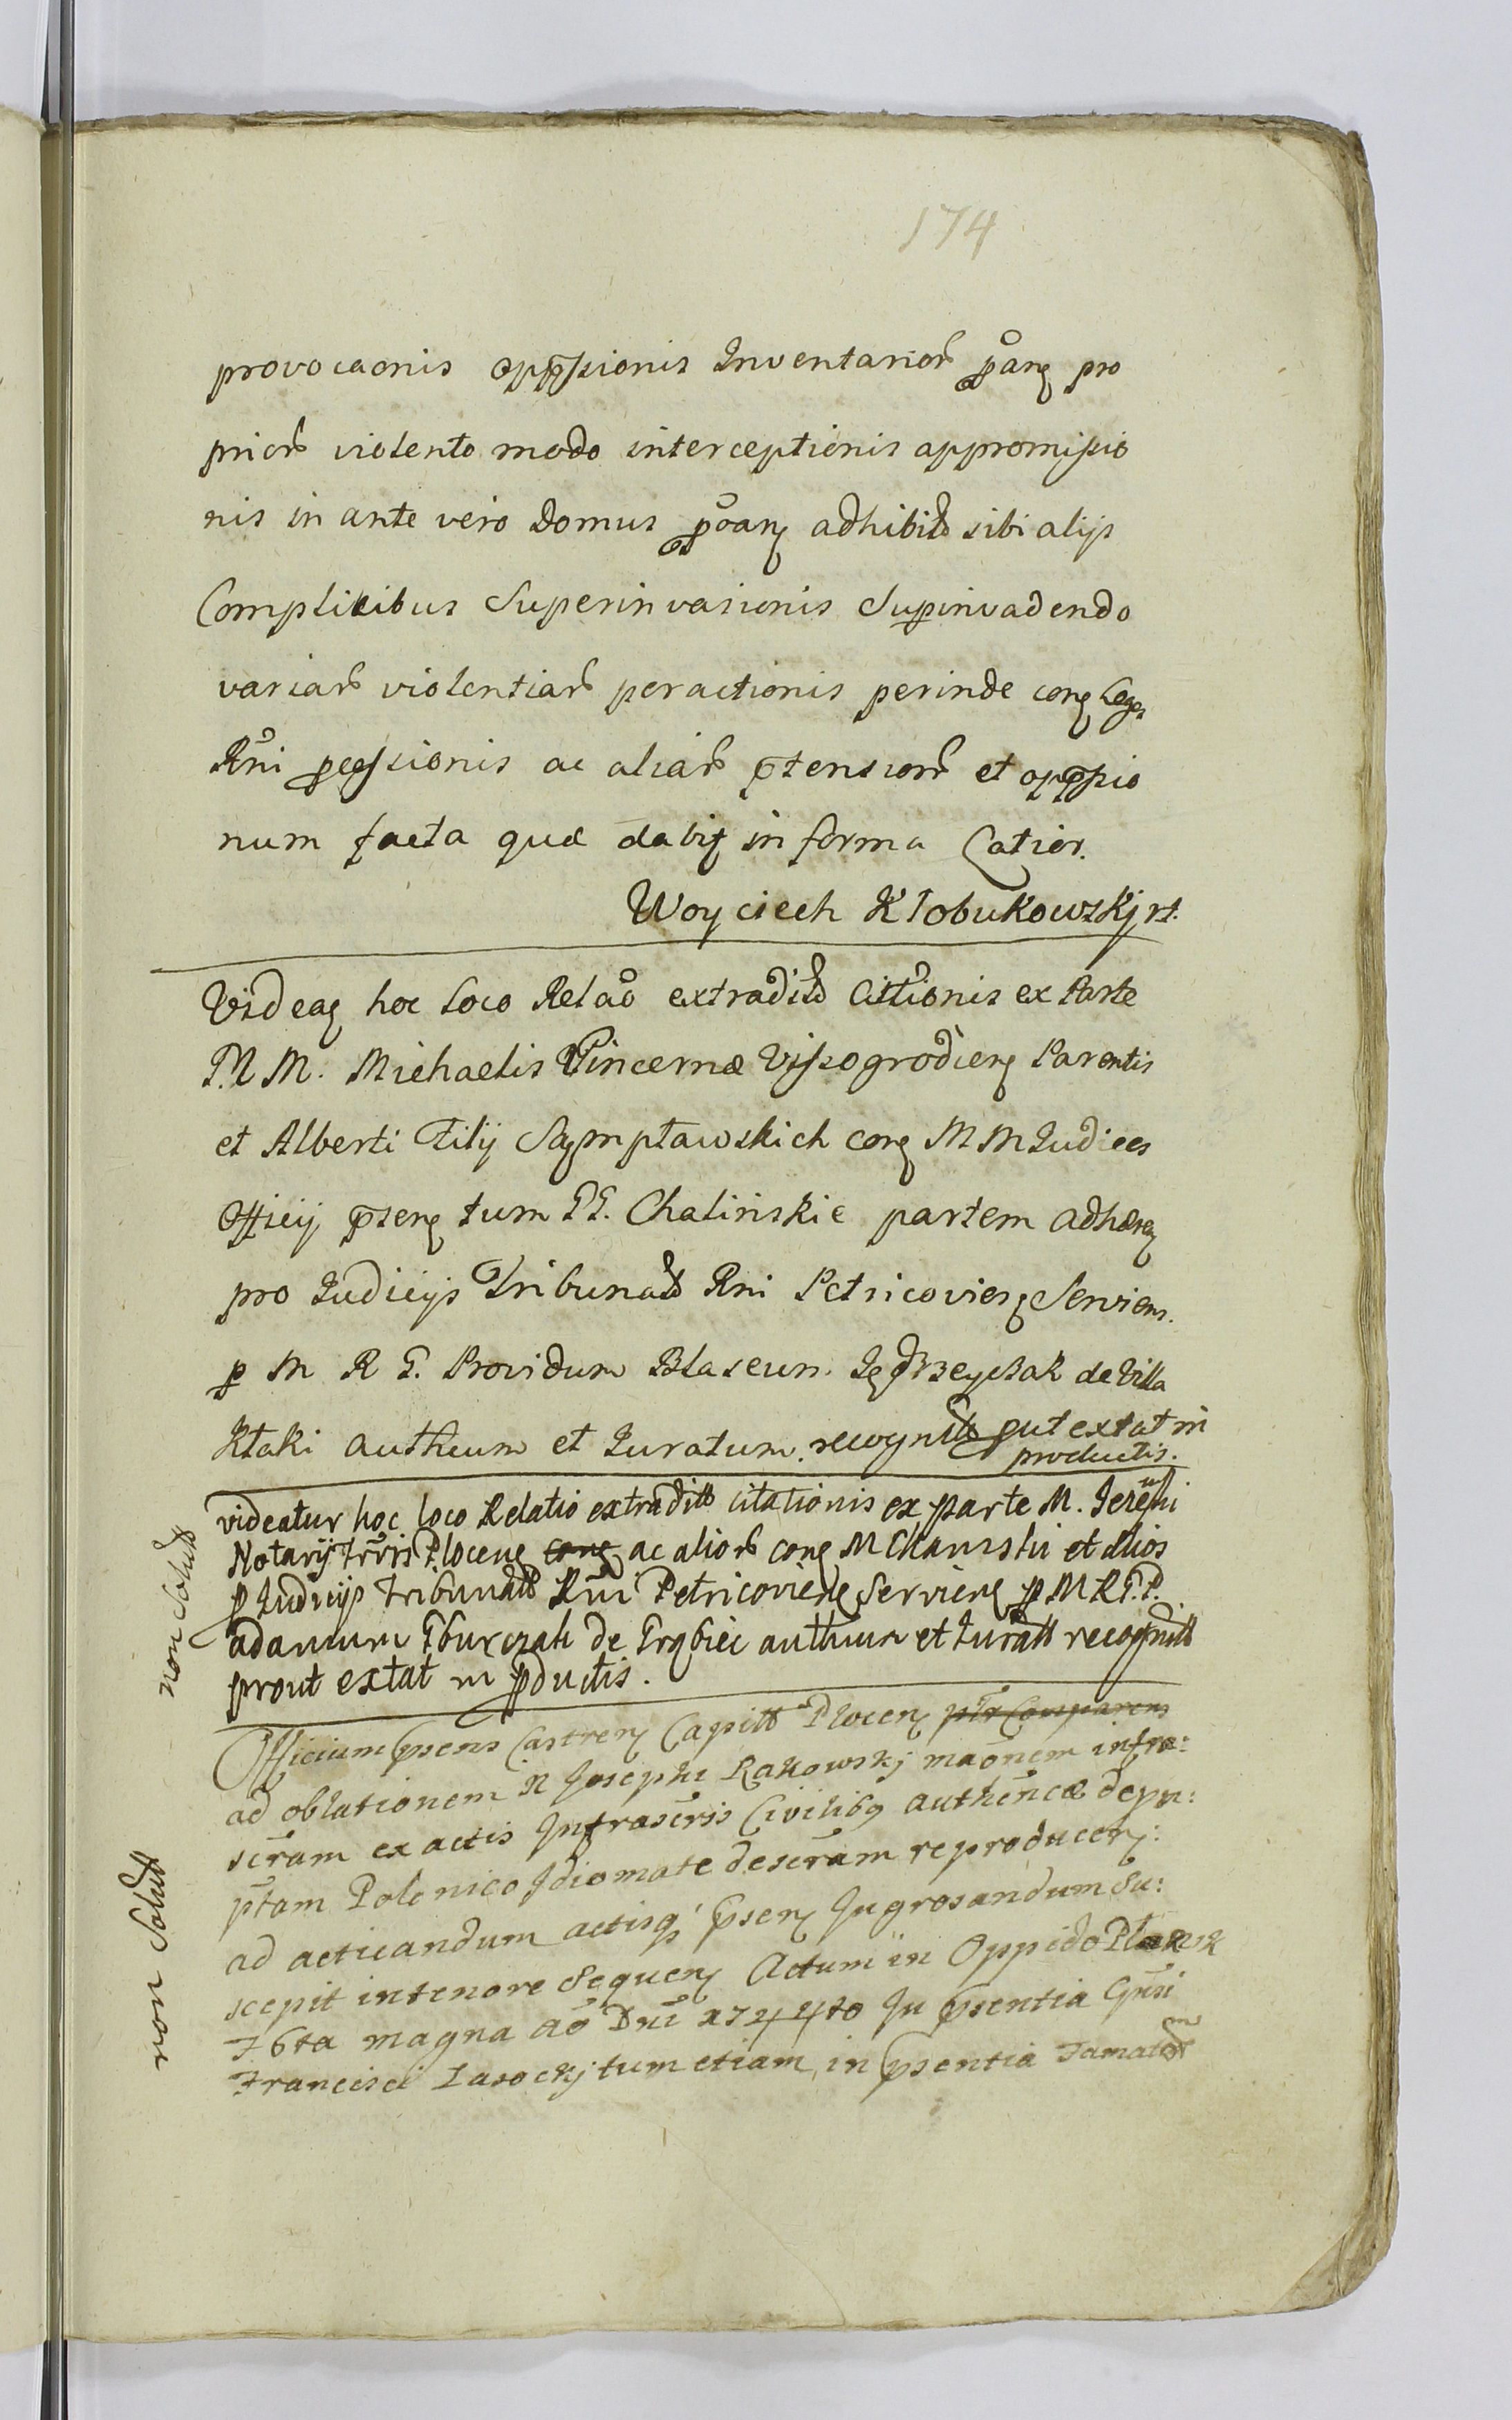 174
provocaonis oppssionis Inventarior pang pro
prior violento modo interceptionis appromissio
nis in ante vero Domus adhibit sibi alijs
Complicibus Superinvasionis Supinvadendo
variar violentiar peractionis perinde cong Leges
Rni pgessionis ac aliar ptension et oppssio
num facta quæ dabit in forma Catior.
Woyciech Kłobukowskj rt.
Videatg hoc loco Relao extradit Cittionis ex Parte
M. Michaelis Pincernæ Vissogrodieng Parentis
et Alberti Filij Sczymptawskich cong M M Judices
Officij pseng tum GG. Chalinskie partem adhereng
pro Judicijs Tribunalt Rni Petricovieng Serviens.
p M R G. Providum Blaseum Jędrzeyczak de Villa
Ktaki Autheum et Juratum. recognit put extat in
productis.
videatur hoc loco Relatio extraditt citationis ex parte M.
Notarij Trris Ploceng cong ac alior cong M Chamski et alios
p Judicijs Tribunalt Rni Petricovieng Servieng p M R G. P.
adamum Gburczak de authum et Juratt recognitt
prout extat in pductis.
non Solutt
Officium psens Castreng Capitt Ploceng ptr Comparens
ad oblationem N Josephi Rakowskj maonem infra:
scram ex actis Infrascris Civilibg authencæ depu:
ptam Polonico Idiomate descram reproduceng:
ad acticandum actisq pseng Ingrosandum Su:
scepit intenore Sequeng Actum in Oppido
76ta magna Ao Dni 1744to In psentia Gnsi
Francisci Lasockj tum etiam in psentia Famatt
non Solutt